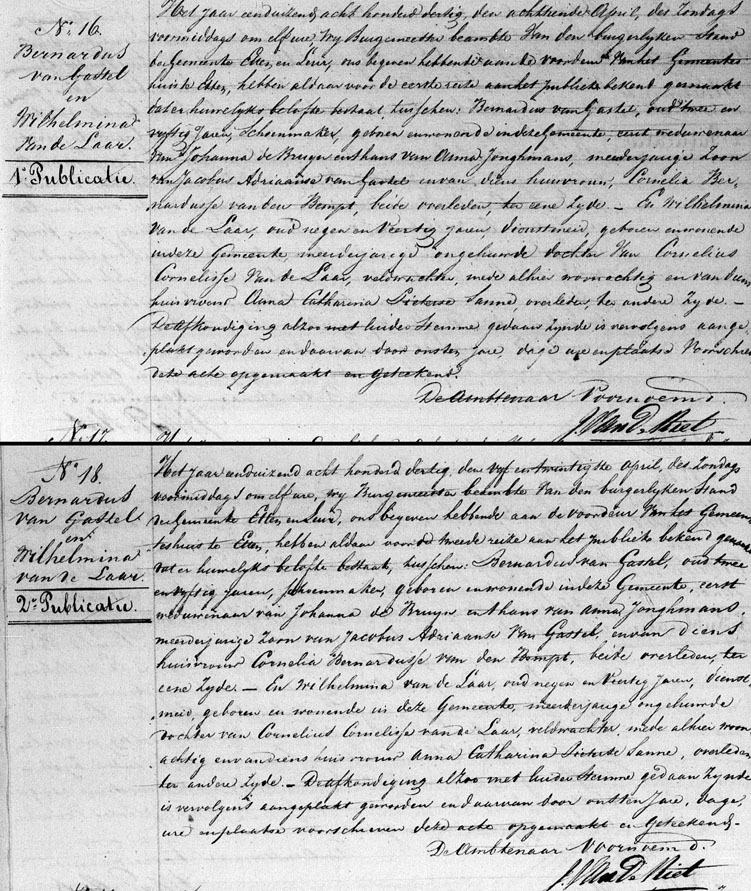 No. 16.
Bernardus
van Gastel
en
Wilhelmina
van de Laar.
1e Publicatie.
Het jaar eenduizend acht honderd dertig, den achttiende April, des Zondags
voormiddags om elf ure, wy Burgemeester beambte van den burgerlyken Stand
der Gemeente Etten, en Leur, ons begeven hebbende aan de voordeur van het Gemeentes
huis te Etten, hebben aldaar voor de eerste reite aan het publiek bekend gemaakt
dat er huwelyks belofte bestaat, tusschen: Bernardus van Gastel, oud twee en
vyftig Jaren, Schoenmaker, geboren en wonende in deze Gemeente, eerst weduwenaar
van Johanna de Bruyn en thans van Anna Jonghmans, meerderjarige Zoon
van Jacobus Adriaanse van Gastel en van diens huisvrouw, Cornelia Ber-
nardusse van den Bempt, beide overleden, ter eene Zyde. — En Wilhelmina
van de Laar, oud negen en Veertig Jaren, dienstmeid, geboren en wonende
in deze Gemeente, meerderjarige ongehuwde dochter van Cornelius
Cornelisse van de Laar, veldwachter, mede alhier woonachtig en van diens
huisvrouw Anna Catharina Pieterse Sanne, overleden, ter andere Zyde. —
De afkondiging alzoo met luider Stemme gedaan Zynde is vervolgens aange-
plakt geworden en daarvan door ons ten Jare, dage ure en plaatse Voorschre
deze acte opgemaakt en Geteekend.
De Ambtenaar Voornoemd.
J. Van De Riet
No. 17.
No. 18.
Bernardus
van Gastel
en
Wilhelmina
van de Laar.
2e Publicatie.
Het jaar eenduizend acht honderd dertig, den vyf en twintigste April, des Zondags
voormiddags om elf ure, wy Burgemeester beambte van den burgerlyken Stand
der Gemeente Etten, en Leur, ons begeven hebbende aan de voordeur van het Gemeen-
teshuis te Etten, hebben aldaar voor de tweede reite aan het publiek bekend gemaakt
dat er huwelyks belofte bestaat, tusschen: Bernardus van Gastel, oud twee
en vyftig Jaren, Schoenmaker, geboren en wonende in deze Gemeente, eerst
weduwenaar van Johanna de Bruyn en thans van Anna Jonghmans
meerderjarige Zoon van Jacobus Adriaanse van Gastel, en van diens
huisvrouw Cornelia Bernardusse van den Bempt, beide overleden, ter
eene Zyde. — En Wilhelmina van de Laar, oud negen en Veertig Jaren, dienst-
meid, geboren en wonende in deze Gemeente, meerderjarige ongehuwde
dochter van Cornelius Cornelisse van de Laar, veldwachter, mede alhier woon-
achtig en van diens huisvrouw Anna Catharina Pieterse Sanne, overleden
ter andere Zyde. — De afkondiging alzoo met luider Stemme gedaan Zynde
is vervolgens aangeplakt geworden en daarvan door ons ten Jare, dage,
ure en plaatse voorschreven deze acte opgemaakt en Geteekend.
De Ambtenaar Voornoemd.
J. Van De Riet